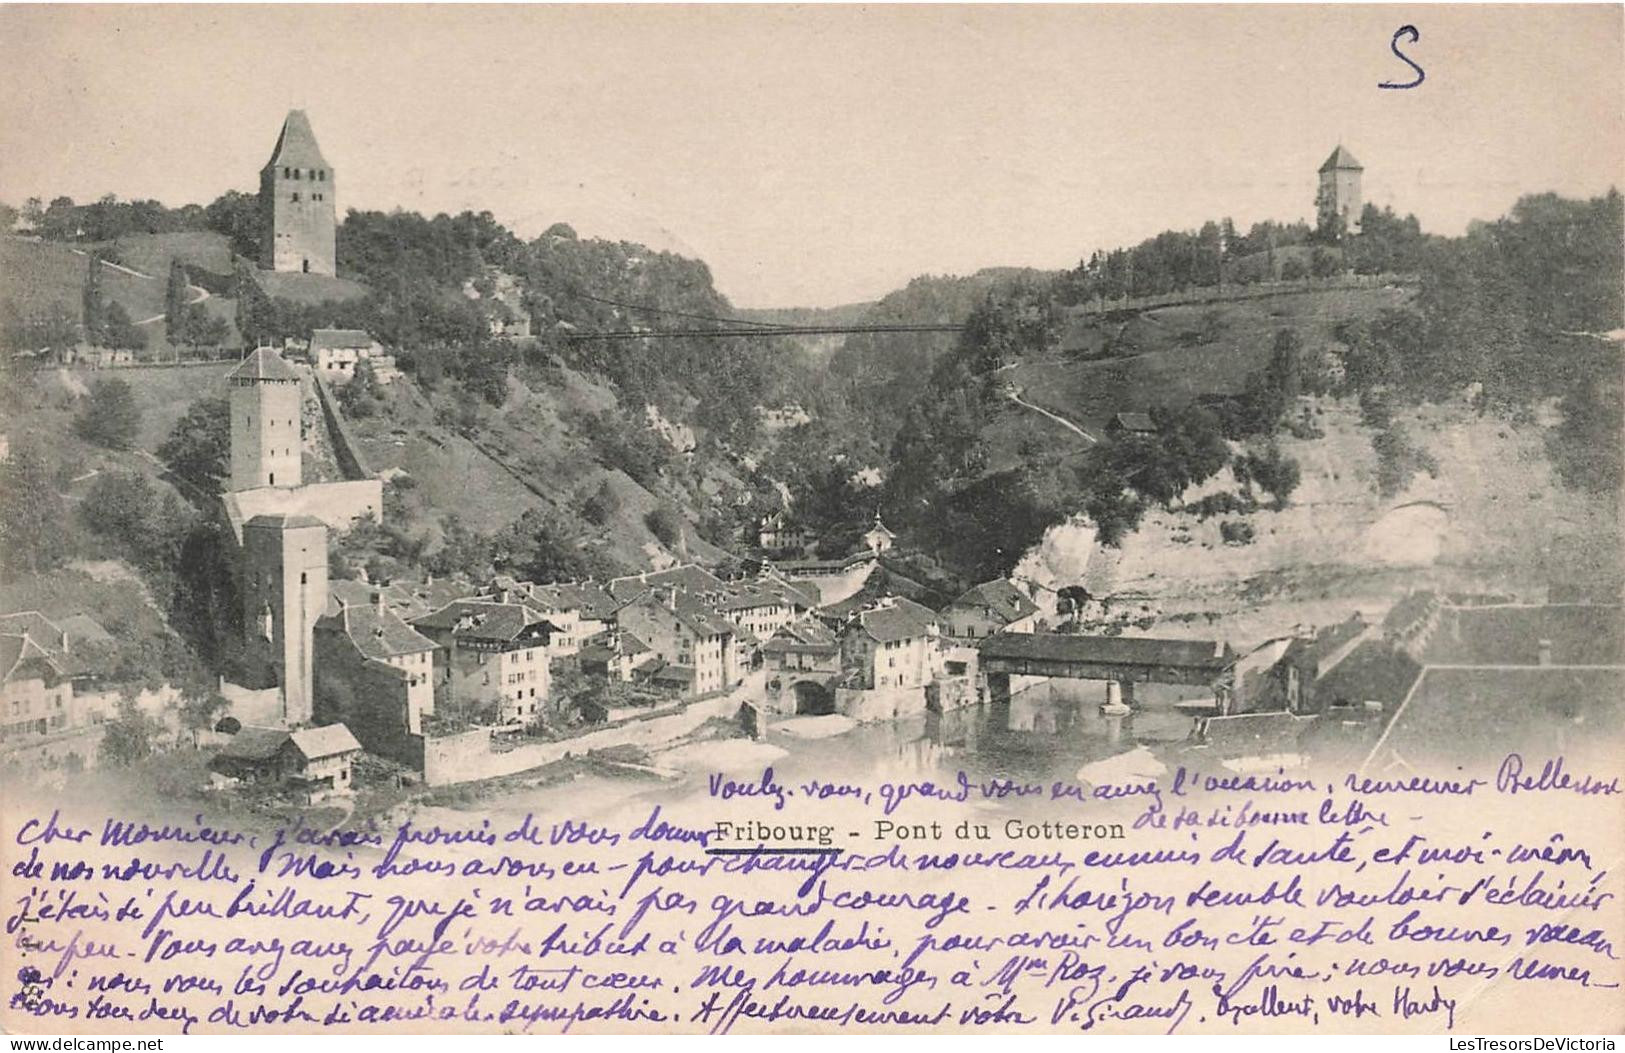 S
Voulez-vous, quand vous en aurez l'occasion, remercier Bellessort
de sa si bonne lettre -
Fribourg - Pont du Gotteron
Cher Monsieur, j'avais promis de vous donner
de nos nouvelles. Mais nous avons eu - pour changer - de nouveaux ennuis de santé, et moi-même,
j'étais si peu brillant, que je n'avais pas grand courage - L'horizon semble vouloir s'éclaircir
un peu - Vous avez payé votre tribut à la maladie, pour avoir un bon été et de bonnes vacan
ces : nous vous les souhaitons de tout cœur. Mes hommages à Mme Roz, je vous prie ; nous vous remer-
cions tous deux de votre si amicale sympathie. Affectueusement vôtre V. Giraud. Excellent, votre Hardy
LesTresorsDeVictoria